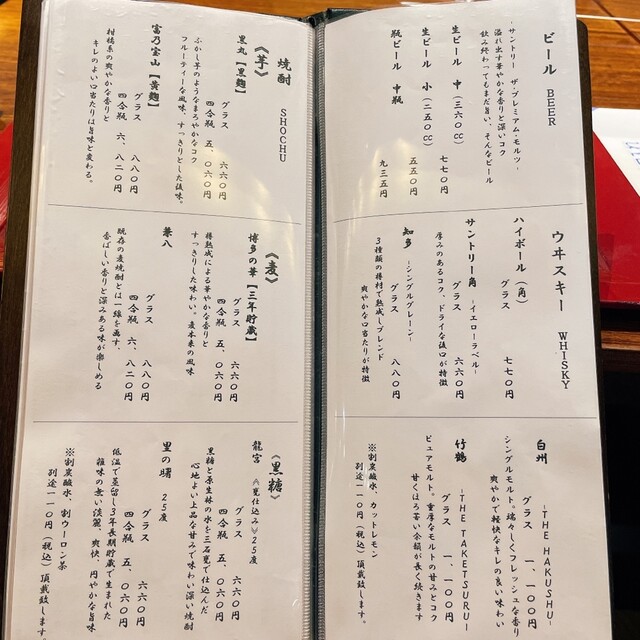 ビール BEER
-サントリー ザ・プレミアム・モルツ-
溢れ出す華やかな香りと深いコク
飲み終わってもまだ旨い、そんなビール
生ビール 中(三六〇cc)
七七〇円
生ビール 小(二五〇cc)
五五〇円
瓶ビール 中瓶
九三五円
ウヰスキー WHISKY
ハイボール(角)
グラス 七七〇円
サントリー角 -イエローラベル-
グラス 六六〇円
厚みのあるコク、ドライな後口が特徴
知多 -シングルグレーン-
グラス 八八〇円
3種類の樽材で熟成しブレンド
爽やかな口当たりが特徴
白州 -THE HAKUSHU-
グラス 一、一〇〇円
シングルモルト。瑞々しくフレッシュな香り
爽やかで軽快なキレの良い味わい
竹鶴 -THE TAKETSURU-
グラス 一、一〇〇円
ピュアモルト。重厚なモルトの甘みとコク
甘くほろ苦い余韻が長く続きます
※割炭酸水、カットレモン
別途一一〇円(税込)頂戴致します。
焼酎 SHOCHU
《芋》
黒丸【黒麹】
グラス 六六〇円
四合瓶 五、〇六〇円
ふかし芋のようなまろやかなコク
フルーティーな風味、すっきりとした後味。
富乃宝山【黄麹】
グラス 八八〇円
四合瓶 六、八二〇円
柑橘系の爽やかな香りと
キレのよい口当たりは旨味と変わる。
《麦》
博多の華【三年貯蔵】
グラス 六六〇円
四合瓶 五、〇六〇円
樽熟成による華やかな香りと
すっきりした味わい。麦本来の風味
兼八
グラス 八八〇円
四合瓶 六、八二〇円
既存の麦焼酎とは一線を画す、
香ばしい香りと深みある味が楽しめる
《黒糖》
龍宮 《甕仕込み》25度
グラス 六六〇円
四合瓶 五、〇六〇円
黒糖と原生林の水を三石甕で仕込んだ
心地よい上品な甘みで味わい深い焼酎
里の曙 25度
グラス 六六〇円
四合瓶 五、〇六〇円
低温で蒸留し3年長期貯蔵で生まれた
雑味の無い淡麗、爽快、円やかな旨味
※割炭酸水、割ウーロン茶
別途一一〇円(税込)頂戴致します。